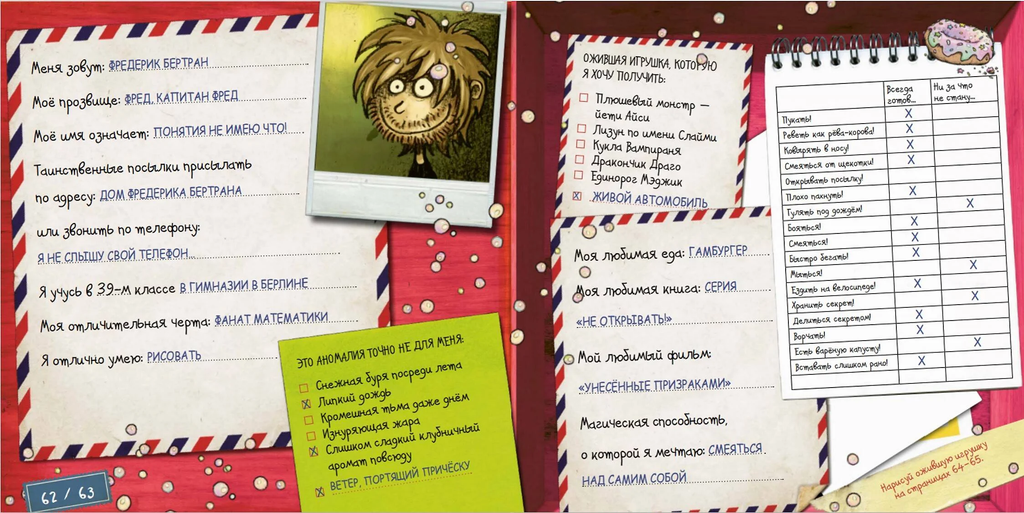 Меня зовут: ФРЕДЕРИК БЕРТРАН
Моё прозвище: ФРЕД, КАПИТАН ФРЕД
Моё имя означает: ПОНЯТИЯ НЕ ИМЕЮ ЧТО!
Таинственные посылки присылать
по адресу: ДОМ ФРЕДЕРИКА БЕРТРАНА
или звонить по телефону:
Я НЕ СЛЫШУ СВОЙ ТЕЛЕФОН...
Я учусь в 39-м классе В ГИМНАЗИИ В БЕРЛИНЕ
Моя отличительная черта: ФАНАТ МАТЕМАТИКИ
Я отлично умею: РИСОВАТЬ
ЭТО АНОМАЛИЯ ТОЧНО НЕ ДЛЯ МЕНЯ:
Снежная буря посреди лета
X Липкий дождь
Кромешная тьма даже днём
Изнуряющая жара
X Слишком сладкий клубничный
аромат повсюду
X ВЕТЕР, ПОРТЯЩИЙ ПРИЧЁСКУ
62 / 63
ОЖИВШАЯ ИГРУШКА, КОТОРУЮ
Я ХОЧУ ПОЛУЧИТЬ:
Плюшевый монстр —
йети Айси
Лизун по имени Слайми
Кукла Вампираня
Дракончик Драго
Единорог Мэджик
X ЖИВОЙ АВТОМОБИЛЬ
Моя любимая еда: ГАМБУРГЕР
Моя любимая книга: СЕРИЯ
«НЕ ОТКРЫВАТЬ!»
Мой любимый фильм:
«УНЕСЁННЫЕ ПРИЗРАКАМИ»
Магическая способность,
о которой я мечтаю: СМЕЯТЬСЯ
НАД САМИМ СОБОЙ
Всегда Ни за что
готов... не стану...
Пукать! X
Реветь как рёва-корова! X
Ковырять в носу! X
Смеяться от щекотки! X
Открывать посылку!
Плохо пахнуть! X
Гулять под дождём! X
Бояться! X
Смеяться! X
Быстро бегать! X
Мыться! X
Ездить на велосипеде! X
Хранить секрет! X
Делиться секретом! X
Ворчать! X
Есть варёную капусту! X
Вставать слишком рано! X
Нарисуй ожившую игрушку
на страницах 64–65.